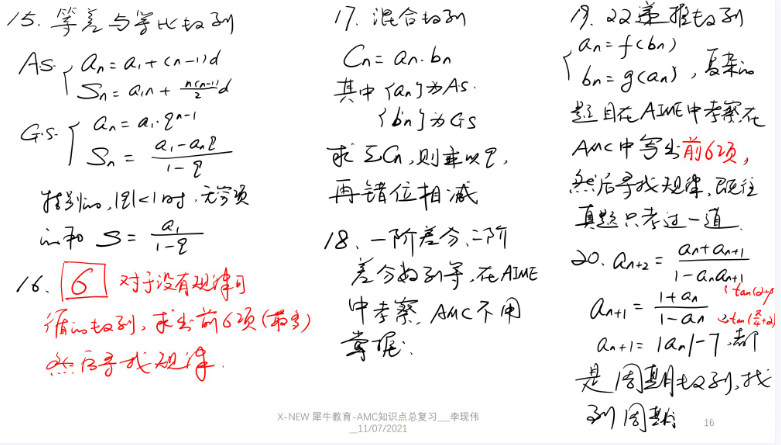 15. 等差与等比数列
As. { an = a1 + (n-1)d
Sn = a1n + n(n-1)/2 d
G.s. { an = a1·q^(n-1)
Sn = (a1-anq)/(1-q)
特别的, |q|<1时, 无穷项
的和 S = a1/(1-q)
16. 6 对于没有规律可
循的数列, 求出前6项(最多)
然后寻找规律.
17. 混合数列
Cn = an·bn
其中{an}为As.
{bn}为Gs
求ΣCn, 则乘以q,
再错位相减
18. 一阶差分、二阶
差分数列等, 在AIME
中考察, AMC不用
掌握.
19. 22递推数列
{ an = f(bn)
bn = g(an) , 复杂的
题目在AIME中考察在
AMC中写出前6项,
然后寻找规律. 既往
真题只考过一道.
20. an+2 = (an+an+1)/(1-anan+1)
an+1 = (1+an)/(1-an)
an+1 = |an|-7, 都
是周期数列, 找
到周期
X-NEW 犀牛教育-AMC知识点总复习__李现伟
__11/07/2021
16